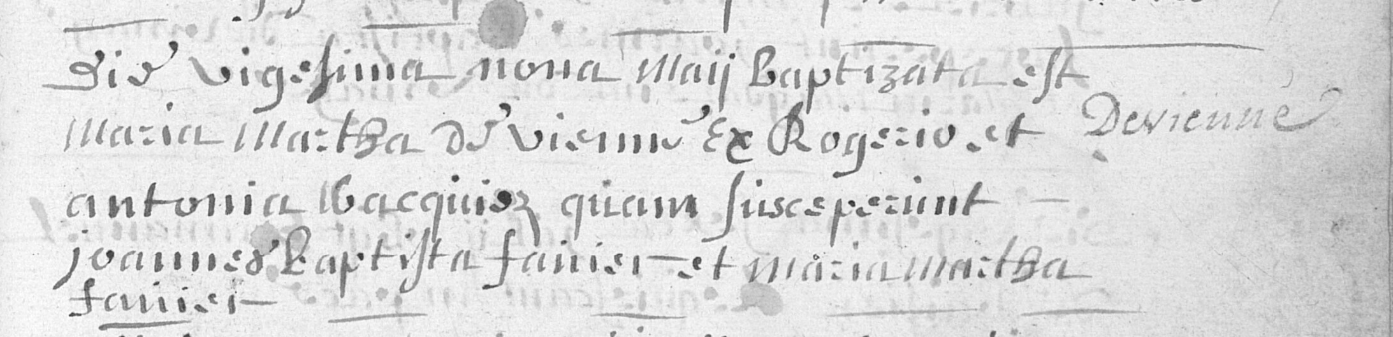 Die vigesima nona Maij baptizata est
Maria Martha de vienne Ex Rogerio et
Devienne
antonia Wacquiez quam susceperunt
joannes Baptista favier et maria martha
favier